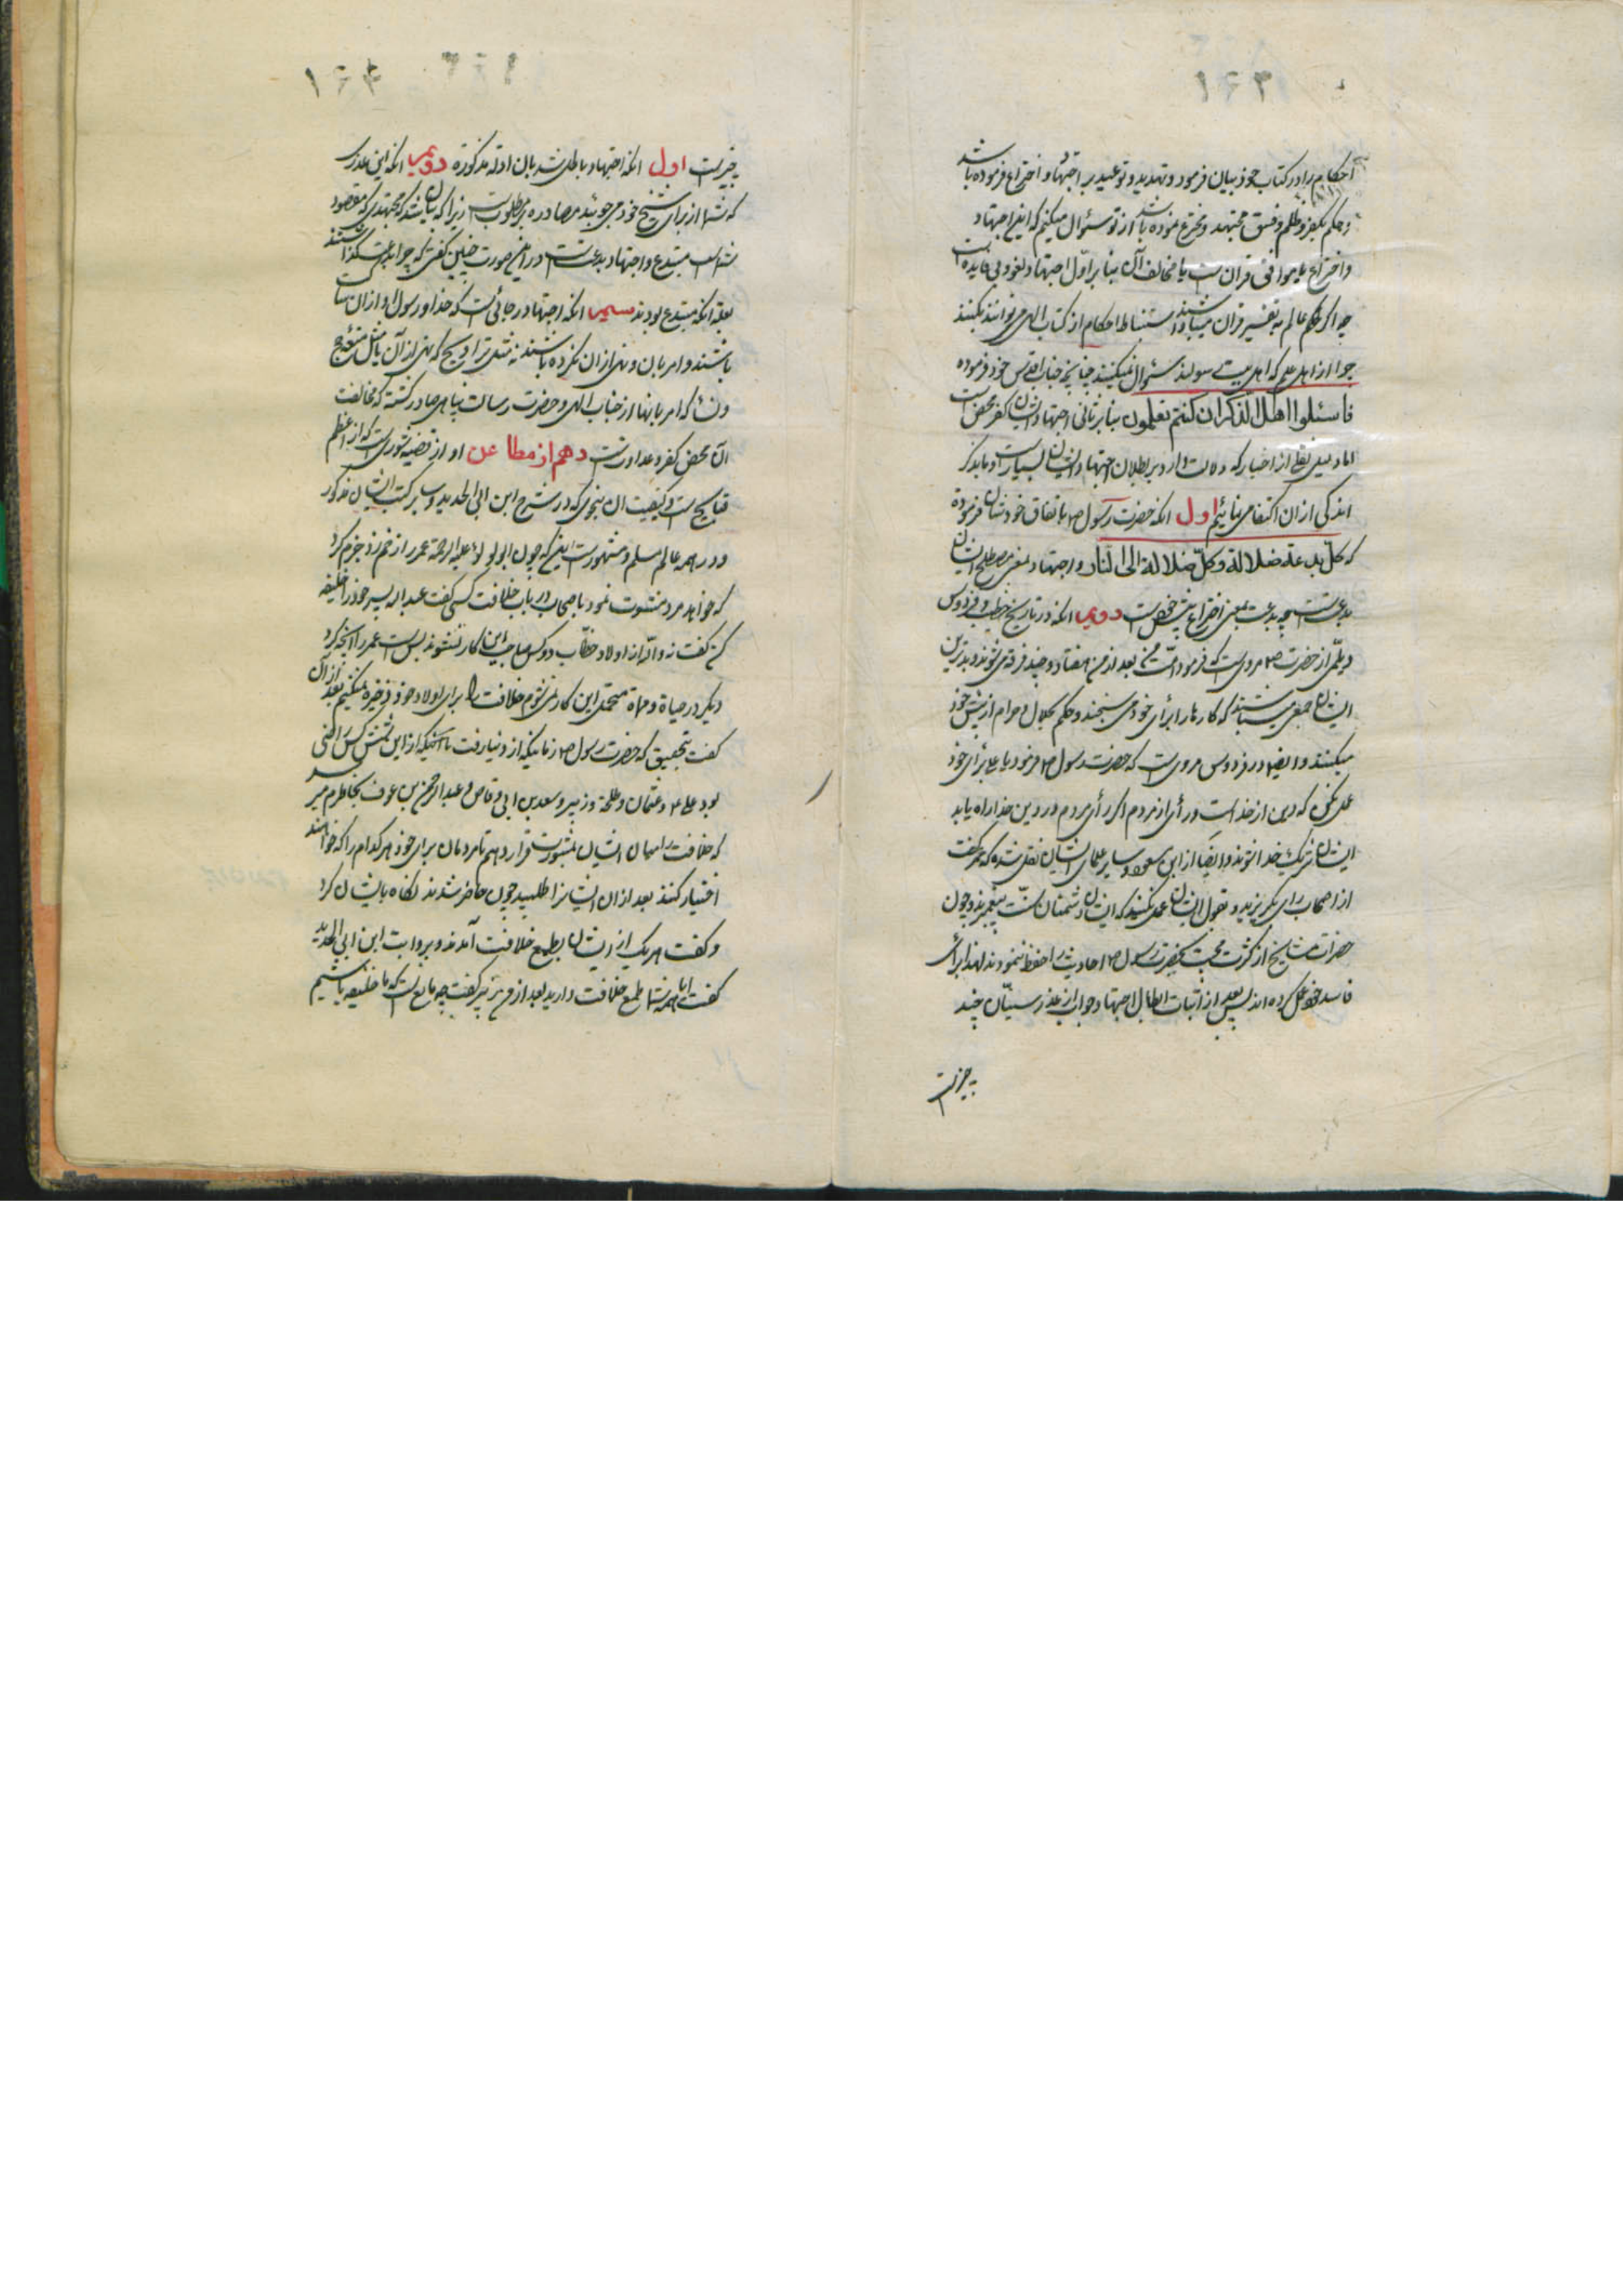 ۱۶۳
احکام را در کتاب خود بیان فرمود و تهدید و توعید بر اجتهاد و اختراع فرموده باشد
و حکم بکفر و ظلم و فسق مجتهد و مخترع نموده باشد از تو سئوال میکنم که این اجتهاد
و اختراع یا موافق قران است یا مخالف آن بنا بر اول اجتهاد لغو و بی فایده است
چه اگر حکم عالم به تفسیر قران میباشند استنباط احکام از کتاب الهی میتوانند بکنند
چرا از اهل علم که اهل بیت رسولند سئوال نمیکنند چنانچه جناب اقدس خود فرموده
فاسئلوا اهل الذکر ان کنتم تعلمون بنا بر ثانی اجتهاد ایشان کفر محض است
اما دلیل نقلی از اخبار که دلالت دارد بر بطلان اجتهاد ایشان بسیار است و ما بذکر
اندکی از ان اکتفا می نمائیم اول انکه حضرت رسول ص باتفاق خودشان فرموده
که کل بدعة ضلالة وکل ضلالة الی النار و اجتهاد بمعنی مصطلح ایشان
بدعت است چه بدعت بمعنی اختراع است دویم انکه در تاریخ خطیب و فردوس
دیلمی از حضرت ص مروی است که فرمود امت من بعد از من هفتاد و چند فرقه می شوند و بدترین
ایشان جمعی میباشند که کارها را برأی خود می سنجند و حکم بحلال و حرام از پیش خود
میکنند و ایضا در فردوس مروی است که حضرت رسول ص فرمود یا علی برأی خود
عمل مکن که دین از خداست و رأی از مردم اگر رأی مردم در دین خدا راه یابد
ایشان شریک خدا شوند و ایضا از ابن مسعود و سایر علمای ایشان نقل شده که عمر گفت
از اصحاب رای بگریزید و بقول ایشان عمل نکنید که ایشان دشمنان سنت پیغمبرند و چون
حضرات مشایخ از کثرت محبت بحضرت رسول ص احادیث را حفظ ننمودند لهذا برأی
فاسد خود عمل کرده اند پس بعد از اثبات ابطال اجتهاد جواب از عذر سنیان چند
چیز است
۱۶۴
چیز است اول انکه اجتهاد باطل شد بان ادله مذکوره دویم انکه این عذر
که شما از برای شیخ خود می جوئید مصادره بر مطلوب است زیرا که مجتهدی که مقصود
شماست مبتدع و اجتهاد بدعت است در این صورت چنین گفتن که چرا بدعت گذاشتند
بعلة انکه مبتدع بودند سیم انکه اجتهاد در جائی است که خدا و رسول او از ان ساکت
باشند و امر بان و نهی از ان نکرده باشند نه مثل تراویح که نهی از آن یا مثل متعه حج
و نسا که امر بانها از جناب الهی و حضرت رسالت پناهی صادر گشته که مخالفت
آن محض کفر و عداوت است دهم از مطاعن او از قضیه شوری است که از اعظم
قبایح است و کیفیت ان بنحوی که در شرح ابن ابی الحدید و سایر کتب ایشان مذکور
و در همه عالم مسلم و مشهور است اینکه چون ابو لولو علیه الرحمه عمر را زخم زد جزم کرد
که خواهد مرد مشورت نمود با اصحاب در باب خلافت کسی گفت عبد الله پسر خود را خلیفه
کن گفت نه والله از اولاد خطاب دو کس صاحب این کار نشوند بس است عمر را آنچه کرد
دیگر در حیاة و مماة متحمل این کار نمی شوم خلافت را برای اولاد خود ذخیره نمیکنم بعد از آن
گفت بتحقیق که حضرت رسول ص زمانیکه از دنیا رفت از این شش کس راضی
بود علی ع و عثمان و طلحة و زبیر و سعد بن ابی وقاص و عبد الرحمن بن عوف بخاطرم میرسد
که خلافت را میان ایشان بمشورت قرار دهم تا مردمان برای خود هر کدام را که خواهند
اختیار کنند بعد از ان ایشانرا طلبید چون حاضر شدند نگاه بایشان کرد
و گفت هر یک از ایشان بطمع خلافت آمدند و بروایت ابن ابی الحدید
گفت ایا همه شما طمع خلافت دارید بعد از من زبیر گفت چه مانع است که ما خلیفه باشیم